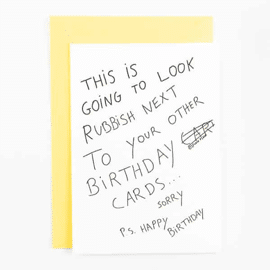 THIS IS
GOING TO LOOK
RUBBISH NEXT
TO YOUR OTHER
BIRTHDAY
CARDS...
SORRY
P.S. HAPPY
BIRTHDAY